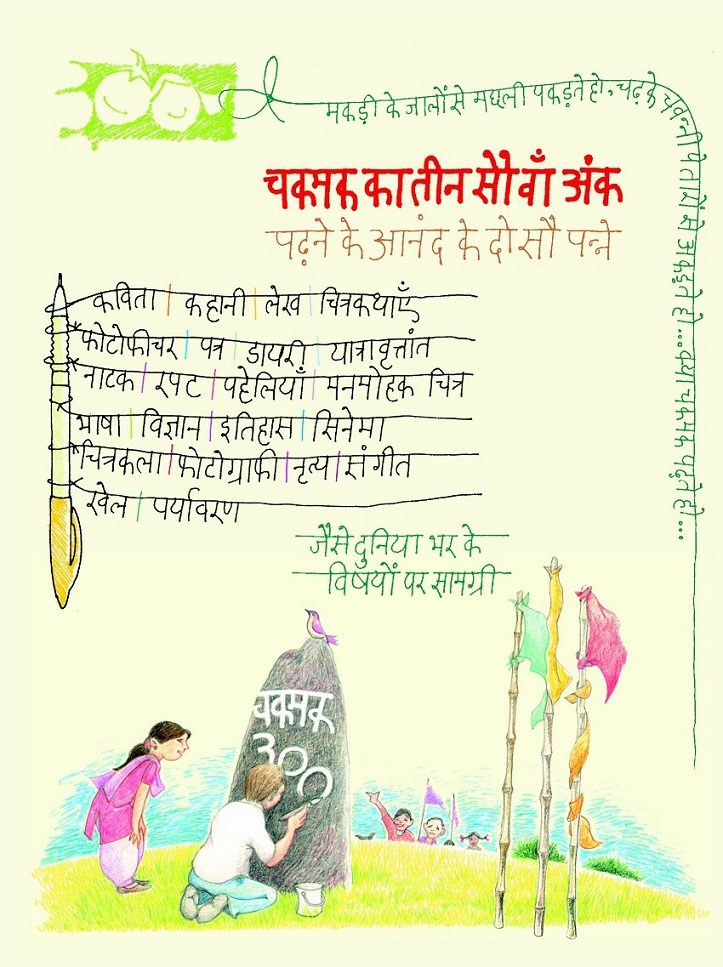 मकड़ी के जालों से मछली पकड़ते हो, चढ़ के चवन्नी पे तारों से अकड़ते हो...क्या चकमक पढ़ते हो...
चकमक का तीन सौ वाँ अंक
पढ़ने के आनंद के दो सौ पन्ने
कविता | कहानी | लेख | चित्रकथाएँ
फोटोफीचर | पत्र | डायरी | यात्रावृत्तांत
नाटक | रपट | पहेलियाँ | मनमोहक चित्र
भाषा | विज्ञान | इतिहास | सिनेमा
चित्रकला | फोटोग्राफी | नृत्य | संगीत
खेल | पर्यावरण
जैसे दुनिया भर के
विषयों पर सामग्री
चकमक
300